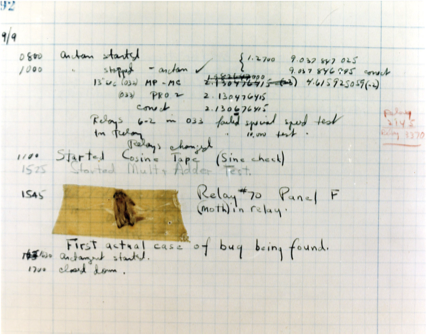 92
9/9
0800 antan started { 1.2700 9.037 847 025
1000 " stopped - antan ✓ 9.037 846 995 correct
13"uc (032) MP - MC 2.130476415 (-3) 4.615925059 (-2)
033 PRO 2 2.130476415
correct 2.130676415
Relays 6-2 in 033 failed special speed test
in relay " 11.000 test.
Relays changed
1100 Started Cosine Tape (Sine check)
1525 Started Multi Adder Test.
1545 Relay #70 Panel F
(moth) in relay.
First actual case of bug being found.
antangent started.
1700 closed down.